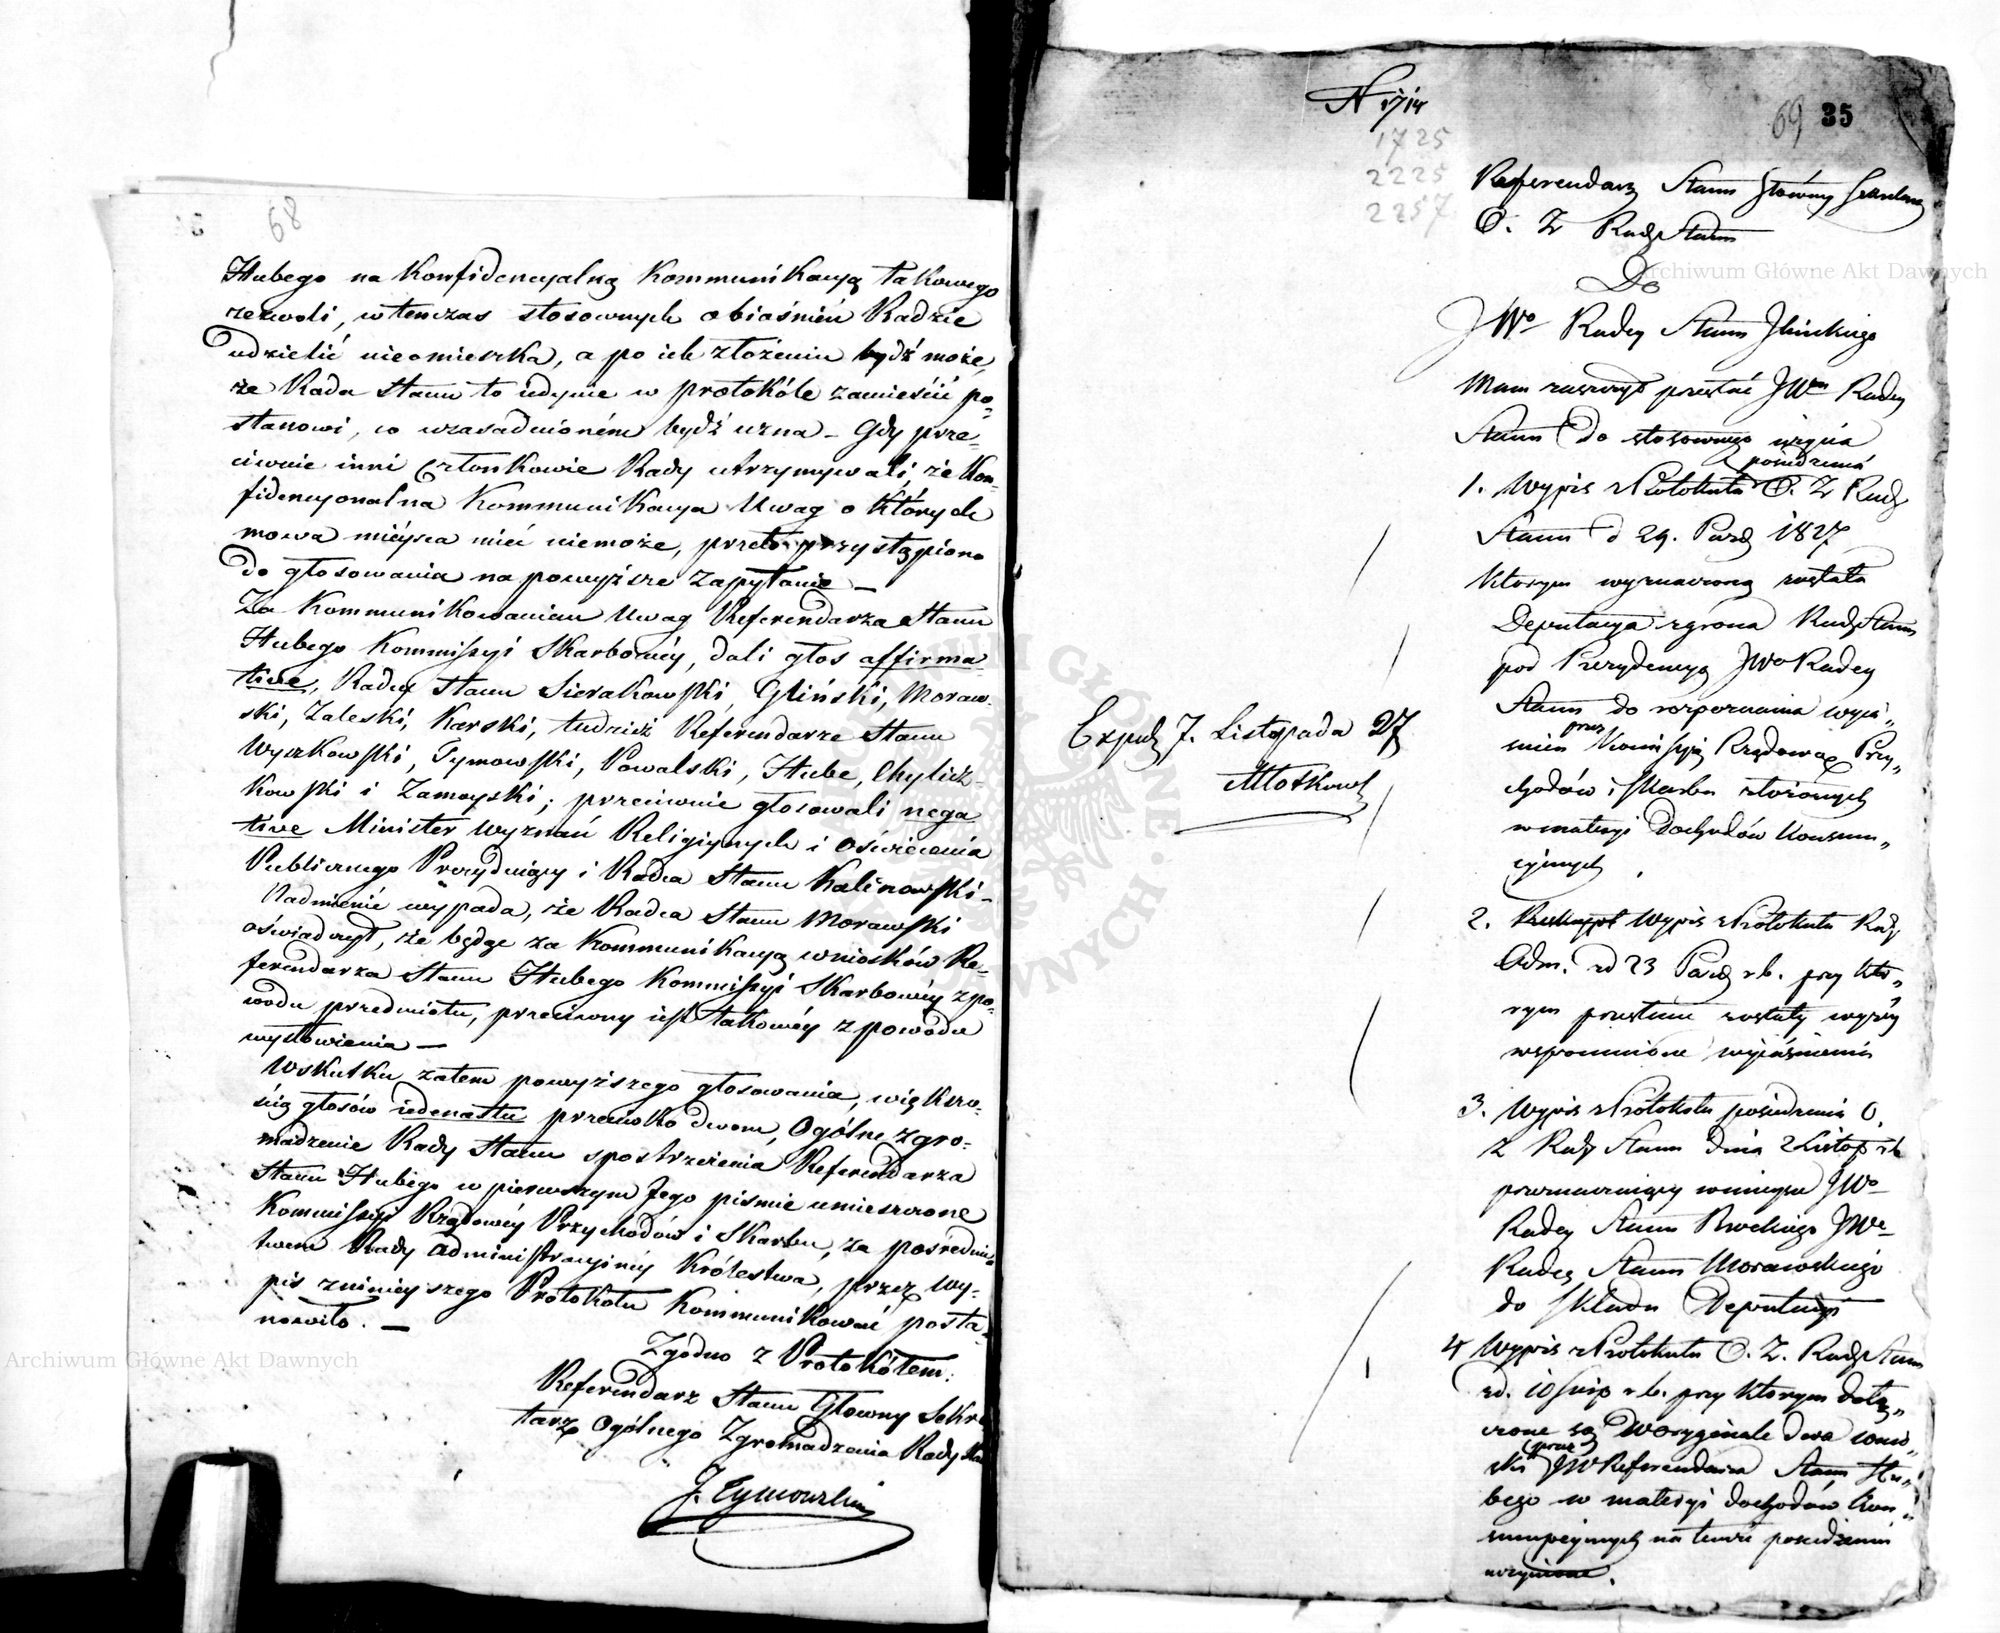 68
Hubego na Konfidencyalną Kommunikacyą takowego
zezwoli, wtenczas stosownych obiaśnień Radzie
udzielić nieomieszka, a po ich złożeniu bydź może,
że Rada Stanu to iedynie w protokóle zamieścić po-
stanowi, co uzasadnioném bydź uzna – Gdy prze-
ciwnie inni Członkowie Rady utrzymywali, że Kon-
fidencyonalna Kommunikacya Uwag o których
mowa mieysca mieć niemoże, przeto przystąpiono
do głosowania na powyższe Zapytanie —
Za Kommunikowaniem Uwag Referendarza Stanu
Hubego Kommissyi Skarbowéy, dali głos affirma-
tive, Radcy Stanu Sierakowski, Gliński, Moraw-
ski, Zaleski, Karski, tudzież Referendarze Stanu
Wyczkowski, Tymowski, Powalski, Hube, Chylicz-
kowski i Zamoyski; przeciwnie głosowali nega
tive Minister Wyznań Religiynych i Oświecenia
Publicznego Prezyduiący i Radca Stanu Kalinowski –
Nadmienić wypada, że Radca Stanu Morawski
oświadczył, że będąc za Kommunikacyą wniosków Re-
ferendarza Stanu Hubego Kommissyi Skarbowéy z po-
wodu przedmiotu, przeciwny iest takowéy z powodu
wysłowienia —
Wskutku zatem powyższego głosowania, większo-
ścią głosów iedenastu przeciwko dwom, Ogólne Zgro-
madzenie Rady Stanu spostrzeżenia Referendarza
Stanu Hubego w pierwszym Jego piśmie umieszczone
Kommissyi Rządowéy Przychodów i Skarbu, za pośrednic
twem Rady Administracyinéy Królestwa, przez Wy-
pis z ninieyszego Protokołu Kommunikować posta-
nowiło. —
Zgodno z Protokółem:
Referendarz Stanu Głowny Sekre
tarz Ogólnego Zgromadzenia Rady Sta
J. Tymowski
N 1714
1725
2225
2257
69 35
Referendarz Stanu Główny Sekretarz
O. Z Rady Stanu
Do
JWo Radcy Stanu
Mam zaszczyt przesłać JWmu Radcy
Stanu do stosownego użycia
posiedzenia
1. Wypis z Protokułu O. Z Rady
Stanu d 29. Paźd 1827
którym wyznaczoną została
Deputacya z grona Rady Stanu
pod Prezydencyą JWo Radcy
Stanu do rozpoznania wyia„
przez
śnień Kommissyią Rządową Przy„
chodów i Skarbu złożonych
w materyi Dochodów Konsum„
cyinych
2. Wypis z Protokułu Rady
Adm. zd 23 Paźd r b. przy któ„
rym przesłane zostały wyżéy
wspomnione wyiaśnienia
Exped 7. Listopada 27
3. Wypis z Protokółu posiedzenia O.
Z Rady Stanu dnia 2 Listop r b
przeznaczaiący w mieysce JWo
Radcy Stanu JWo
Radcę Stanu Morawskiego
do składu Deputacyi
4 Wypis z Protokułu O. Z. Rady Stanu
zd. 10 Sierp r b. przy którym dołą„
czone są w oryginale dwa wnio„
przez
ski JW Referendarza Stanu Hu„
bego w materyi dochodów Kon„
sumpcyinych na temże posiedzeniu
uczynione.
Archiwum Główne Akt Dawnych
Archiwum Główne Akt Dawnych